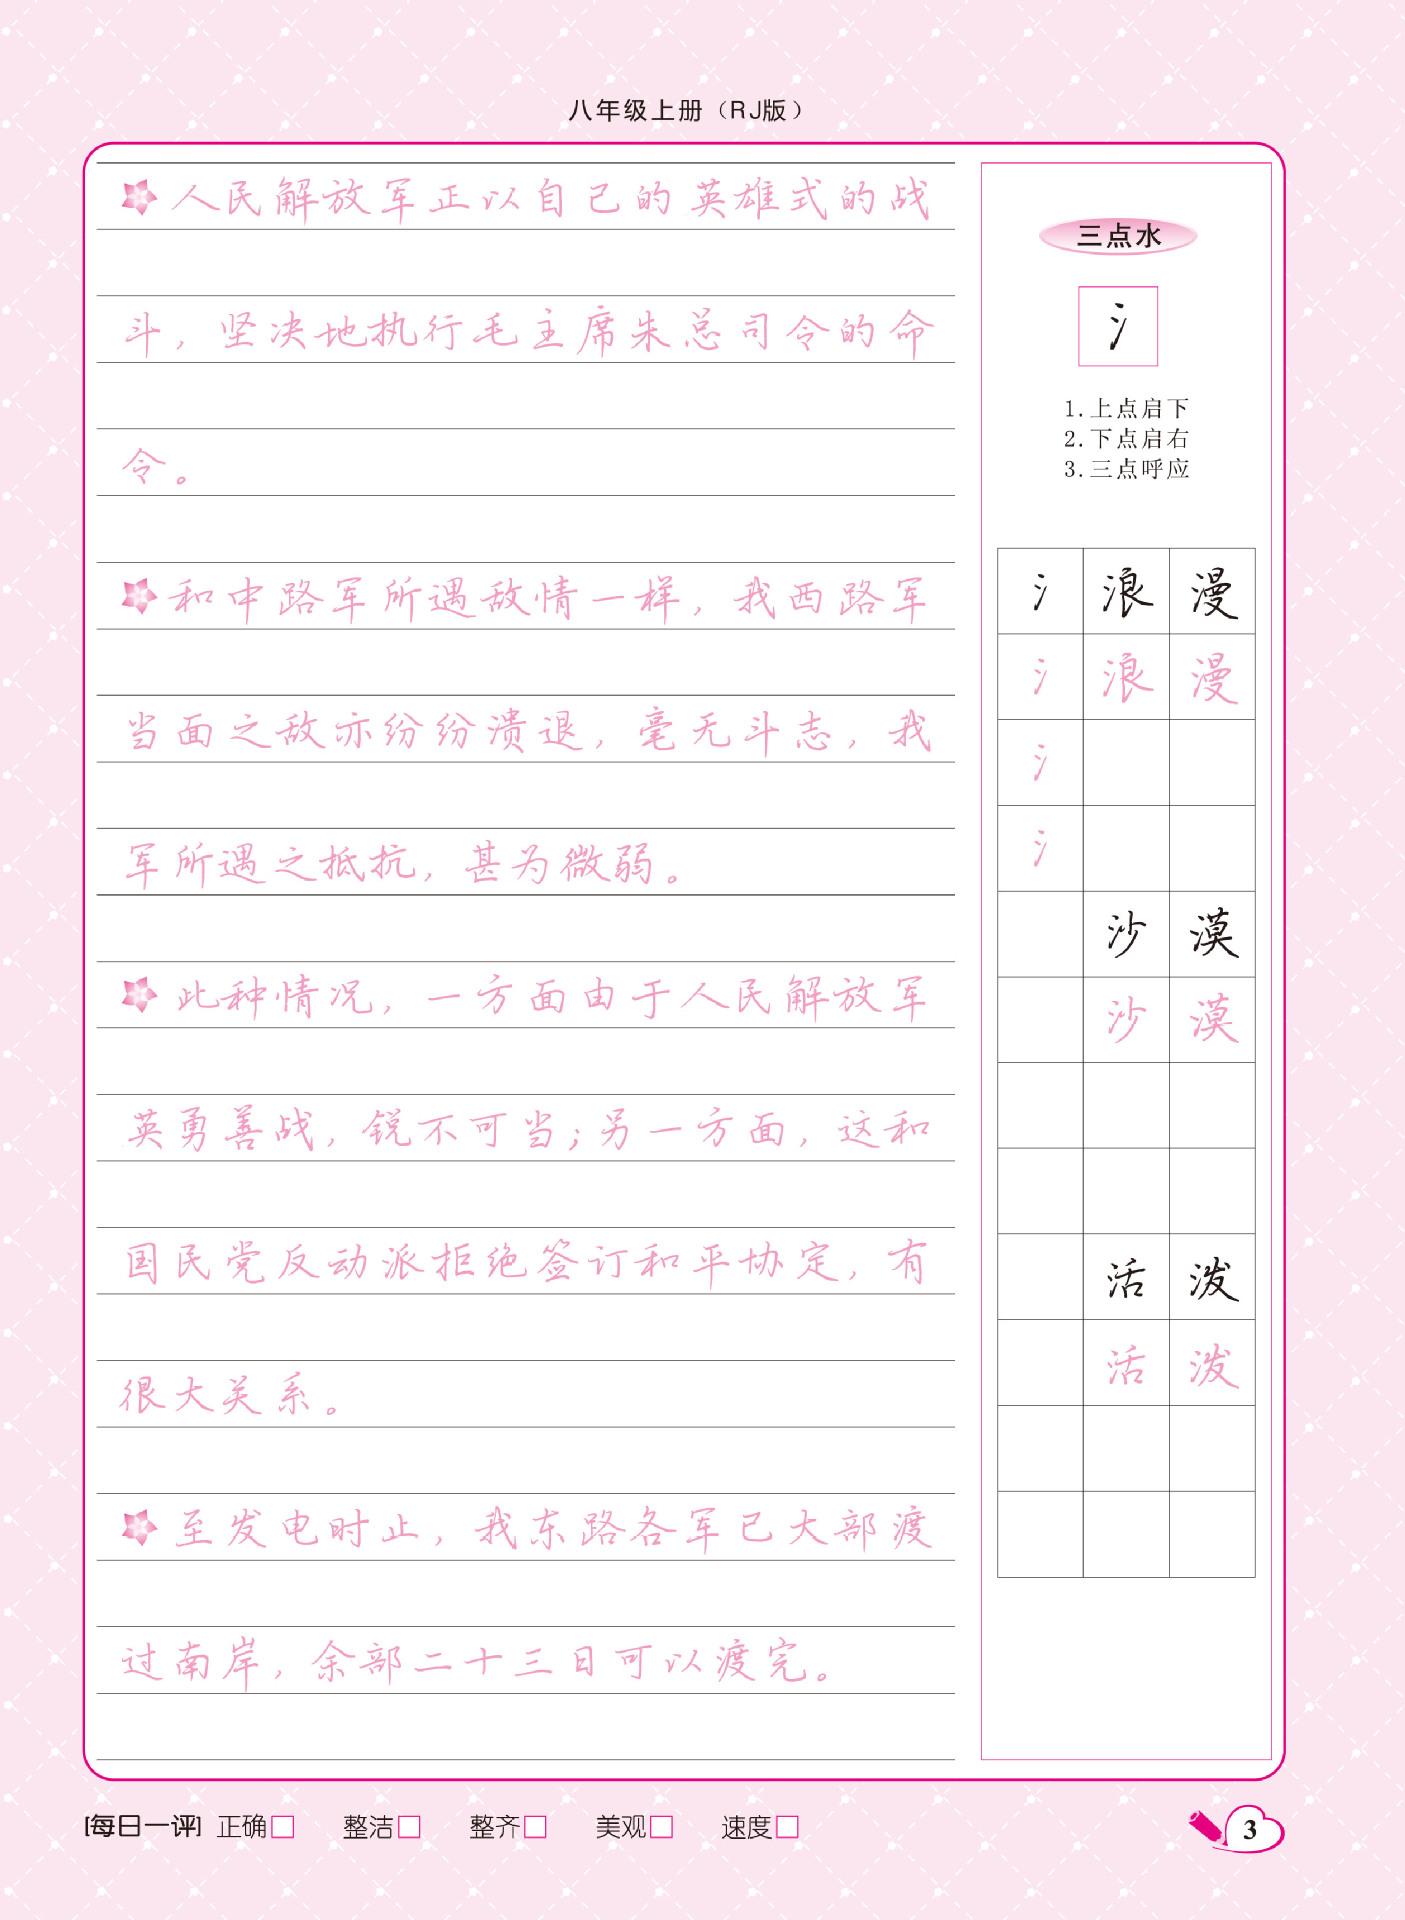 八年级上册（RJ版）
人民解放军正以自己的英雄式的战
斗，坚决地执行毛主席朱总司令的命
令。
和中路军所遇敌情一样，我西路军
当面之敌亦纷纷溃退，毫无斗志，我
军所遇之抵抗，甚为微弱。
此种情况，一方面由于人民解放军
英勇善战，锐不可当；另一方面，这和
国民党反动派拒绝签订和平协定，有
很大关系。
至发电时止，我东路各军已大部渡
过南岸，余部二十三日可以渡完。
三点水
氵
1.上点启下
2.下点启右
3.三点呼应
氵 浪 漫
氵 浪 漫
氵
氵
沙 漠
沙 漠
活 泼
活 泼
[每日一评] 正确□ 整洁□ 整齐□ 美观□ 速度□
3